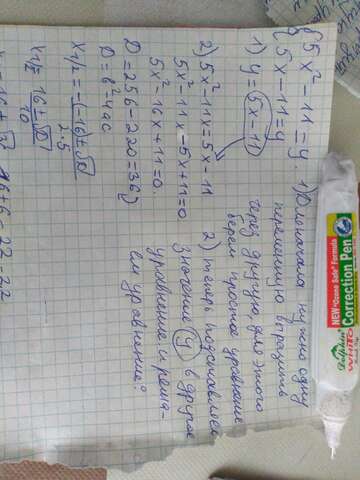 {5x²-11=y
5x-11=y
1) y=5x-11
2) 5x²-11x=5x-11
5x²-11x-5x+11=0
5x²-16x+11=0.
D=256-220=36)
D=b²-4ac
2·5
10
1) Сначала нужно одну
переменную выразить
через другую, для этого
берем простое уравнение
2) теперь подставляем
значение y в другое
уравнение и реша-
ем уравнение:
NEW "Ozone Safe" Formula
Correction Pen
Dolphin
WHITE